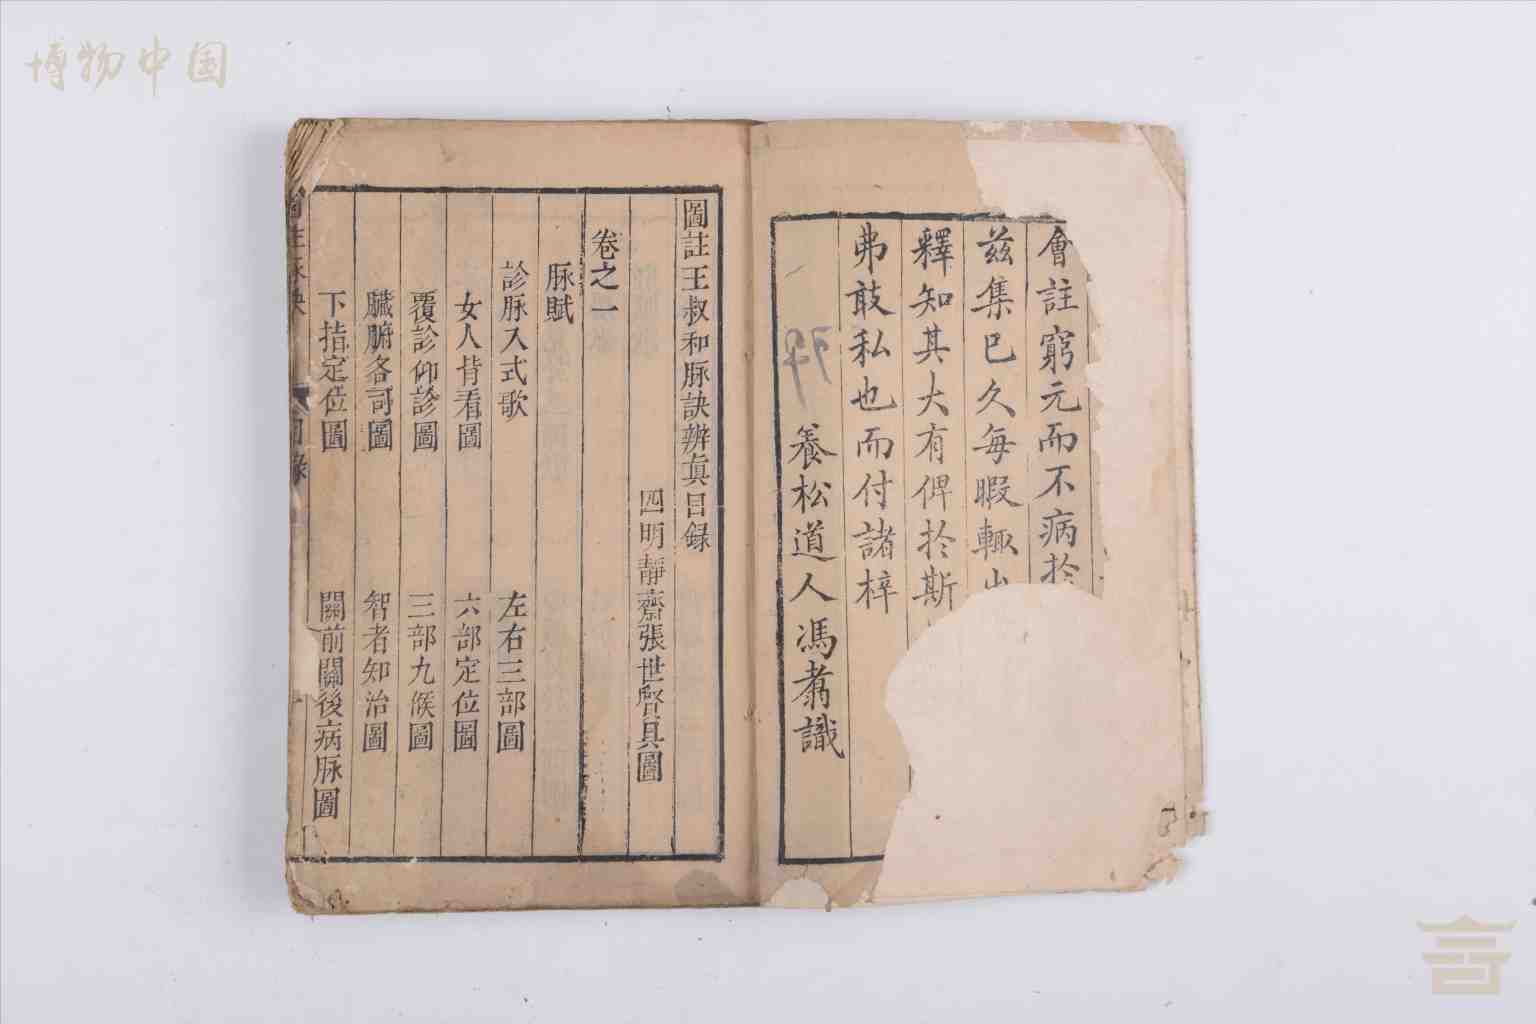 博物中国
會註窮元而不病於
茲集已久每暇輒出
釋知其大有俾於斯
弗敢私也而付諸梓
養松道人馮
識
圖註王叔和脉訣辨真目録
四明靜齋張世賢具圖
卷之一
脉賦
診脉入式歌 左右三部圖
女人背看圖 六部定位圖
覆診仰診圖 三部九候圖
臟腑各司圖 智者知治圖
下指定位圖 關前關後病脉圖